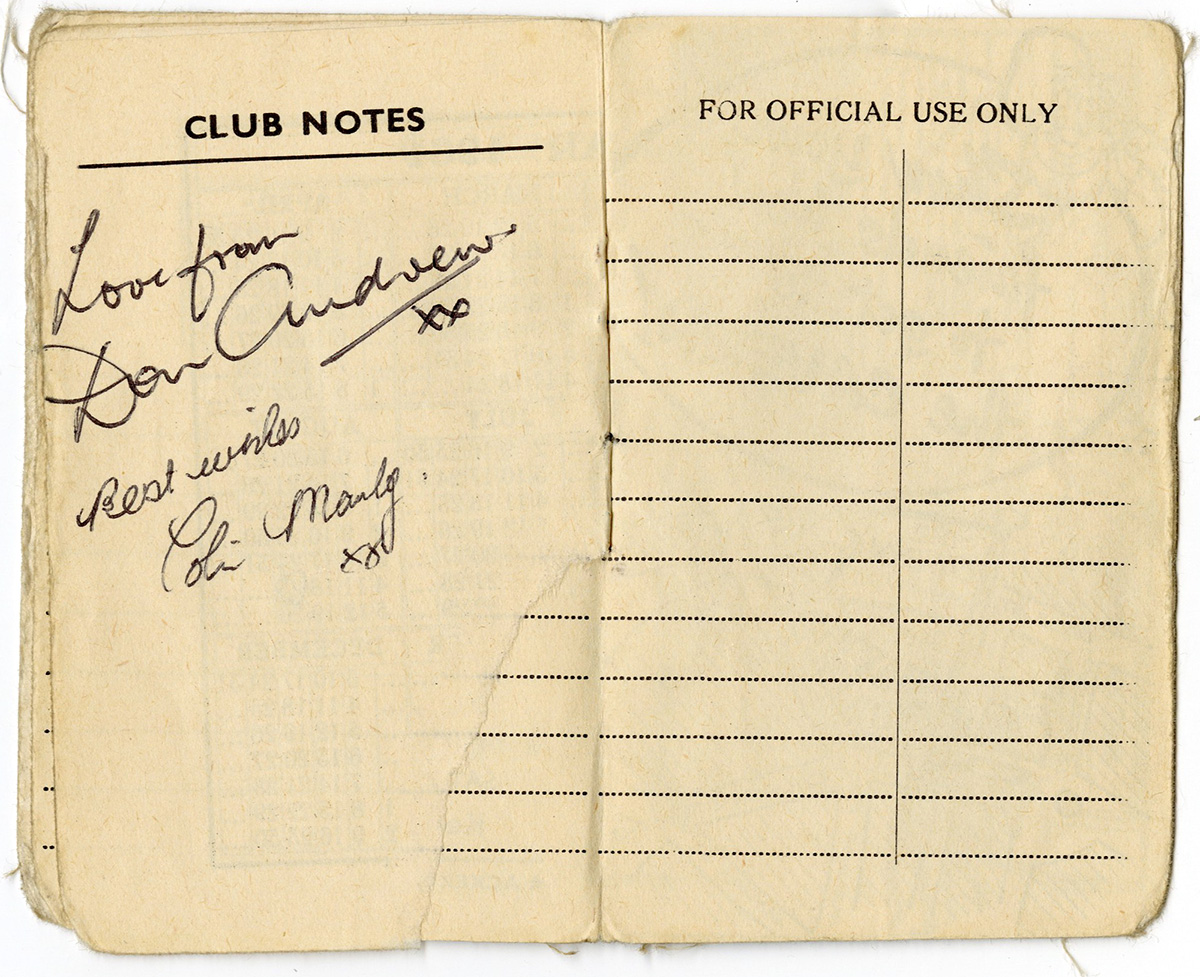 CLUB NOTES
Love from
Don Andrew
xx
Best wishes
Colin
xx
FOR OFFICIAL USE ONLY